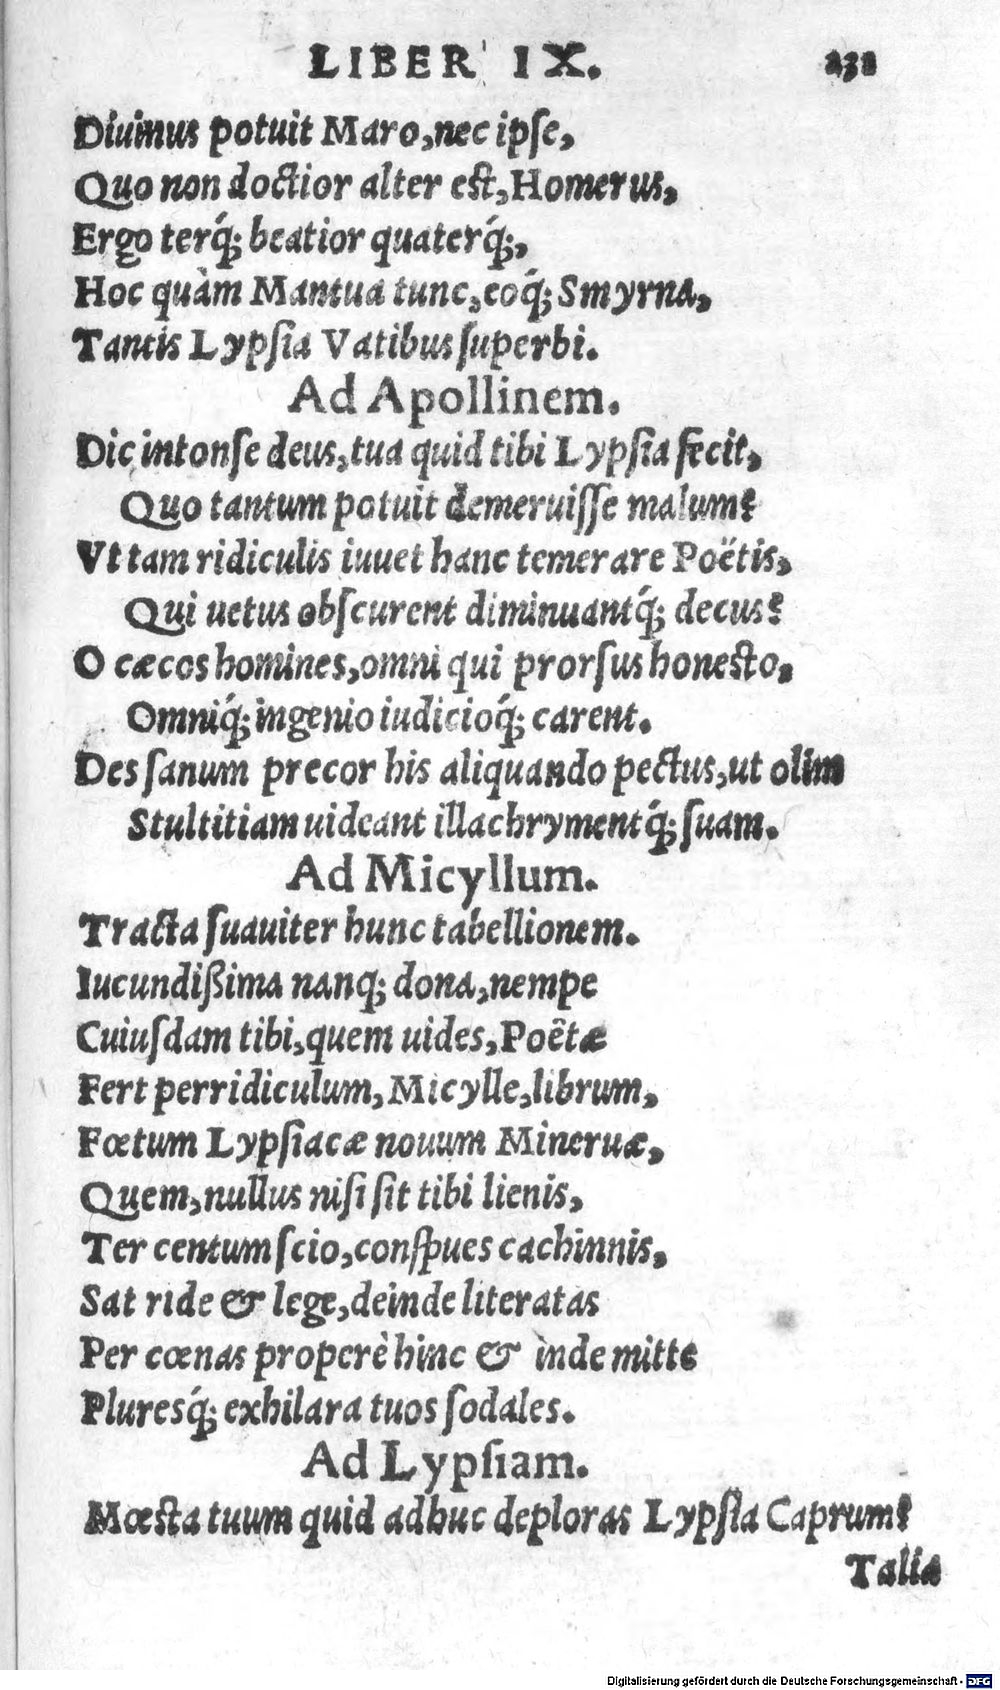 LIBER IX. 232
Diuinus potuit Maro, nec ipſe,
Quo non doctior alter eſt, Homerus,
Ergo terq́; beatior quaterq́;,
Hoc quàm Mantua tunc, eoq́; Smyrna,
Tantis Lypſia Vatibus ſuperbi.
Ad Apollinem.
Dic intonſe deus, tua quid tibi Lypſia fecit,
Quo tantum potuit demeruiſſe malum?
Vt tam ridiculis iuuet hanc temerare Poëtis,
Qui uetus obſcurent diminuantq́; decus?
O cæcos homines, omni qui prorſus honeſto,
Omniq́; ingenio iudicioq́; carent.
Des ſanum precor his aliquando pectus, ut olim
Stultitiam uideant illachrymentq́; ſuam.
Ad Micyllum.
Tracta ſuauiter hunc tabellionem.
Iucundißima nanq; dona, nempe
Cuiuſdam tibi, quem uides, Poëtæ
Fert perridiculum, Micylle, librum,
Fœtum Lypſiacæ nouum Mineruæ,
Quem, nullus niſi ſit tibi lienis,
Ter centum ſcio, conſpues cachinnis,
Sat ride & lege, deinde literatas
Per cœnas properè hinc & inde mitte
Pluresq́; exhilara tuos ſodales.
Ad Lypſiam.
Mœſta tuum quid adhuc deploras Lypſia Caprum?
Talia
Digitalisierung gefördert durch die Deutsche Forschungsgemeinschaft - DFG